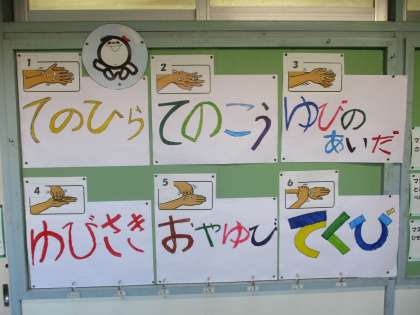 1
てのひら
2
てのこう
3
ゆびの
あいだ
4
ゆびさき
5
おやゆび
6
てくび